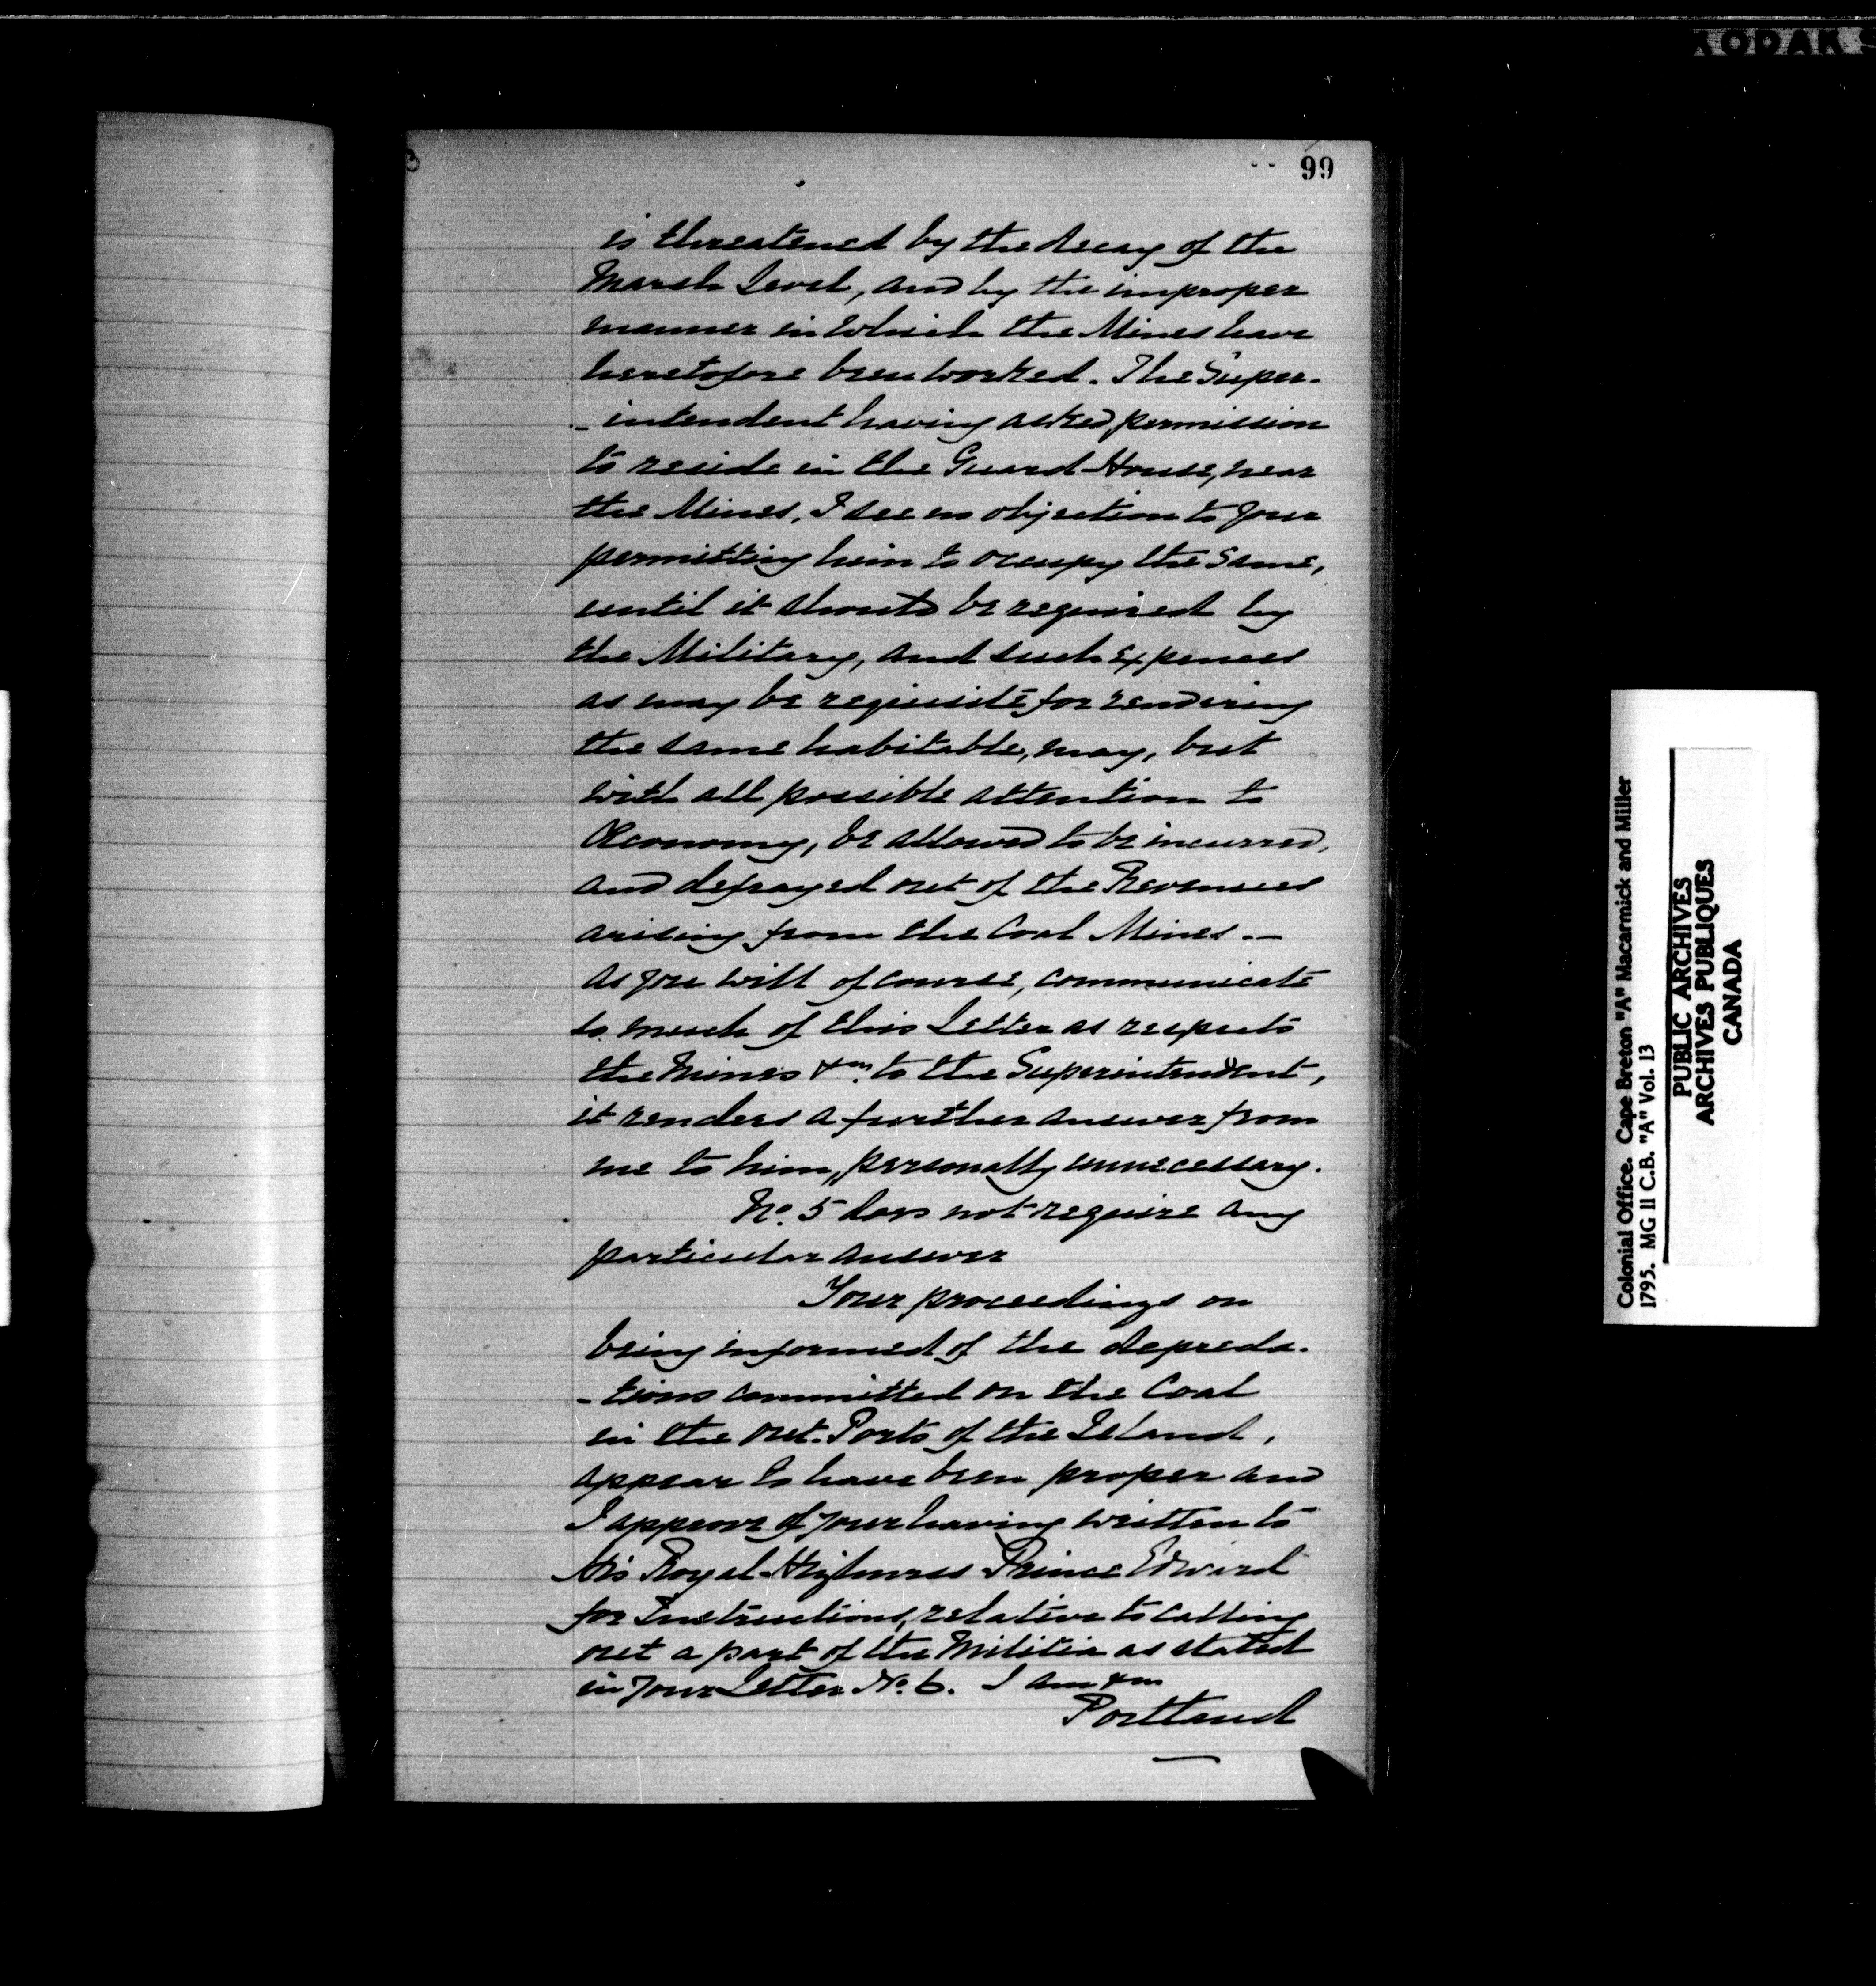 KODAK S
99
is threatened by the decay of the
Marsh Level, and by the improper
manner in which the Mines have
heretofore been worked. The Super-
-intendent having asked permission
to reside in the Guard-House, near
the Mines, I see no objection to your
permitting him to occupy the same,
until it should be required by
the Military, and such Expences
as may be requisite for rendering
the same habitable, may, but
with all possible attention to
Œconomy, be allowed to be incurred,
and defrayed out of the Revenues
arising from the Coal Mines.—
As you will of course, communicate
so much of this Letter as respects
the Mines &ca. to the Superintendent,
it renders a further answer from
me to him, personally unnecessary.
No. 5 does not require any
particular answer
Your proceedings on
being informed of the depreda-
-tions committed on the Coal
in the out-Ports of the Island,
appear to have been proper and
I approve of your having written to
His Royal-Highness Prince Edward
for Instructions, relative to calling
out a part of the Militia as stated
in your Letter No. 6. I am &ca
Portland
Colonial Office. Cape Breton "A" Macarmick and Miller
1795. MG 11 C.B. "A" Vol. 13
PUBLIC ARCHIVES
ARCHIVES PUBLIQUES
CANADA